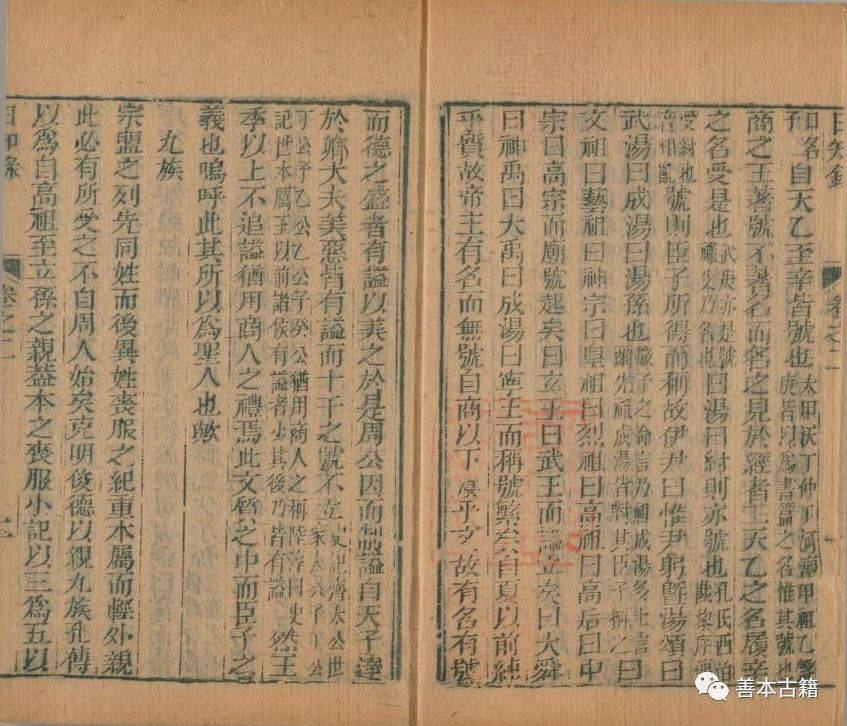 日知錄
卷之二
自天乙至辛皆號也太甲沃丁仲丁河亶甲祖乙盤庚皆以爲書篇之名惟其號也
商之王著號不著名而名之見於經者二天乙之名履辛
之名受是也武庚亦是號祿父乃名也曰湯曰紂則亦號也孔氏西伯戡黎序傳
受紂也音相亂號則臣子所得而稱故伊尹曰惟尹躬曁湯頌曰
武湯曰成湯曰湯孫也微子之命言乃祖成湯多士言爾先祖成湯皆對其臣子稱之曰
文祖曰藝祖曰神宗曰皇祖曰烈祖曰高祖曰高后曰中
宗曰高宗而廟號起矣曰玄王曰武王而謚立矣曰大舜
曰神禹曰大禹曰成湯曰寧王而稱號繁矣自夏以前純
乎質故帝王有名而無號自商以下寖乎文故有名有號
而德之盛者有謚以美之於是周公因而制謚自天子達
於卿大夫美惡皆有謚而十干之號不立史記齊太公世家太公子丁公
丁公子乙公乙公子癸公猶用商人之稱陸淳曰史記世本厲王以前諸侯有謚者少其後乃皆有謚然王
季以上不追謚猶用商人之禮焉此文質之中而臣子之
義也嗚呼此其所以爲聖人也歟
九族
宗盟之列先同姓而後異姓喪服之紀重本屬而輕外親
此必有所受之不自周人始矣克明俊德以親九族孔傳
以爲自高祖至玄孫之親蓋本之喪服小記以三爲五以
日知錄
卷之二
善本古籍